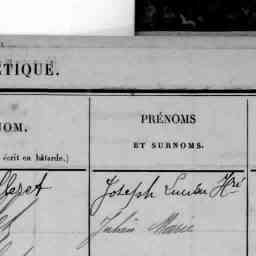 ÉTIQUE.
NOM.
écrit en bâtarde.)
PRÉNOMS
ET SURNOMS.
Joseph Lucien Hré
Julien Marie